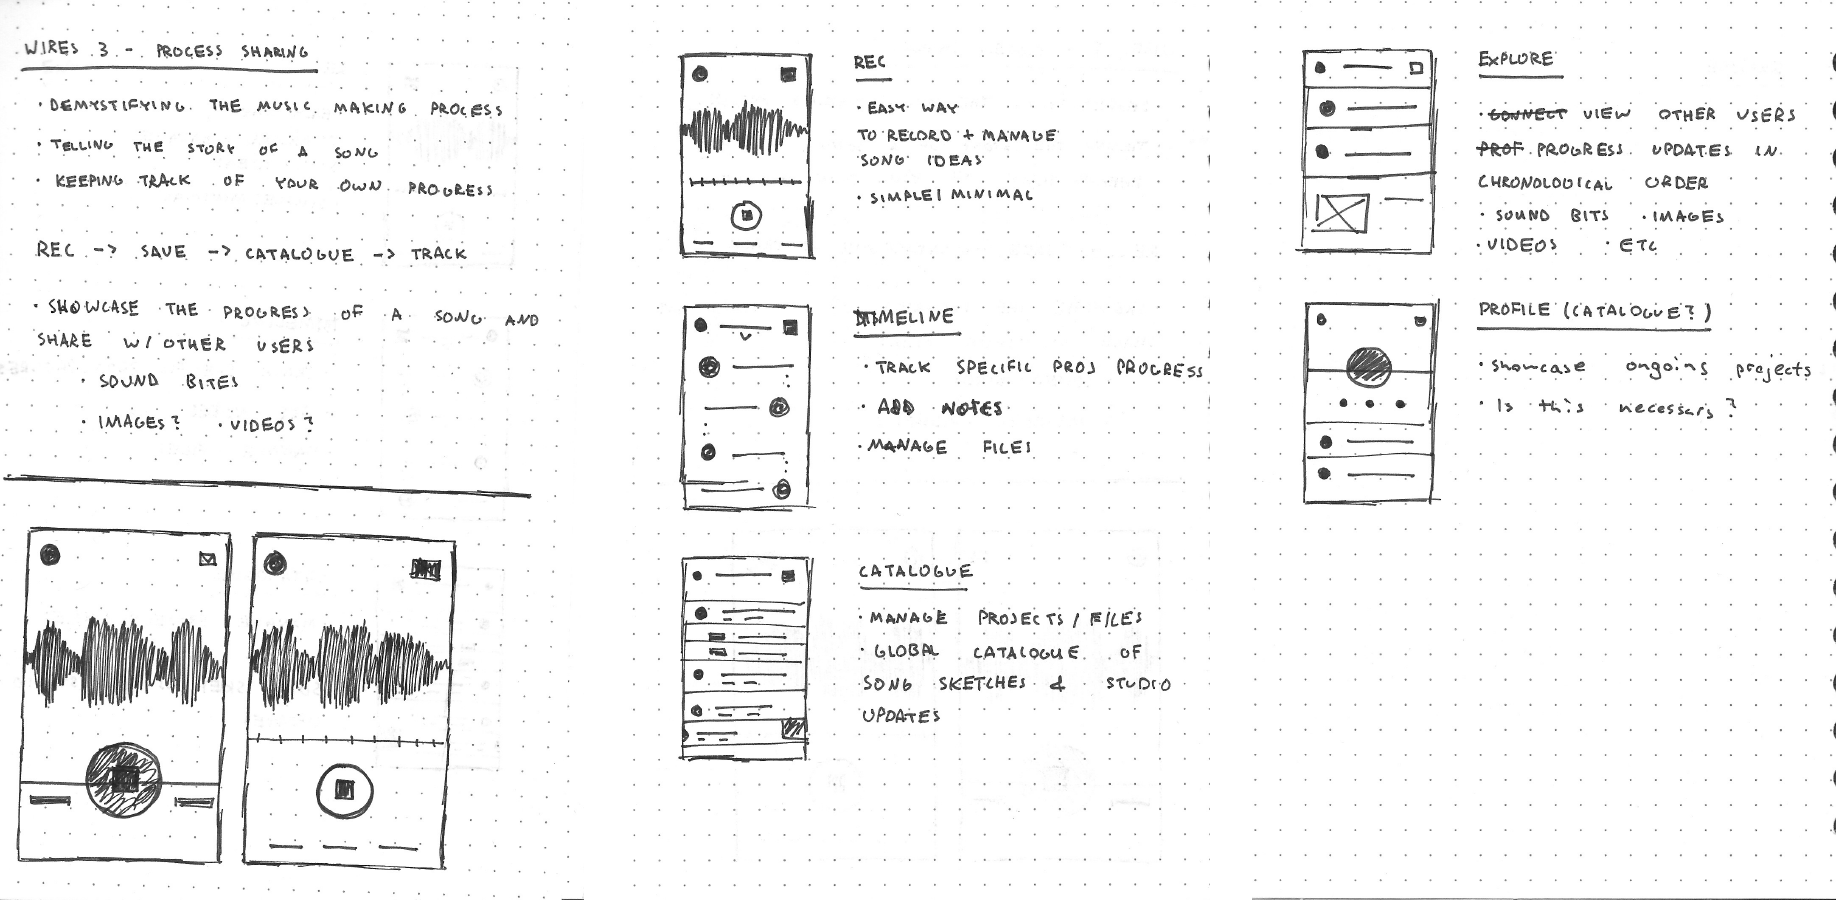 WIRES 3 - PROCESS SHARING
· DEMYSTIFYING THE MUSIC MAKING PROCESS
· TELLING THE STORY OF A SONG
· KEEPING TRACK OF YOUR OWN PROGRESS
REC -> SAVE -> CATALOGUE -> TRACK
· SHOWCASE THE PROGRESS OF A SONG AND
SHARE W/ OTHER USERS
· SOUND BITES
· IMAGES? · VIDEOS?
REC
· EASY WAY
TO RECORD + MANAGE
SONG IDEAS
· SIMPLE/MINIMAL
TIMELINE
· TRACK SPECIFIC PROJ PROGRESS
· ADD NOTES
· MANAGE FILES
CATALOGUE
· MANAGE PROJECTS / FILES
· GLOBAL CATALOGUE OF
SONG SKETCHES & STUDIO
UPDATES
EXPLORE
· CONNECT VIEW OTHER USERS
PROF PROGRESS UPDATES IN
CHRONOLOGICAL ORDER
· SOUND BITS · IMAGES
· VIDEOS · ETC
PROFILE (CATALOGUE?)
· showcase ongoing projects
· Is this necessary?